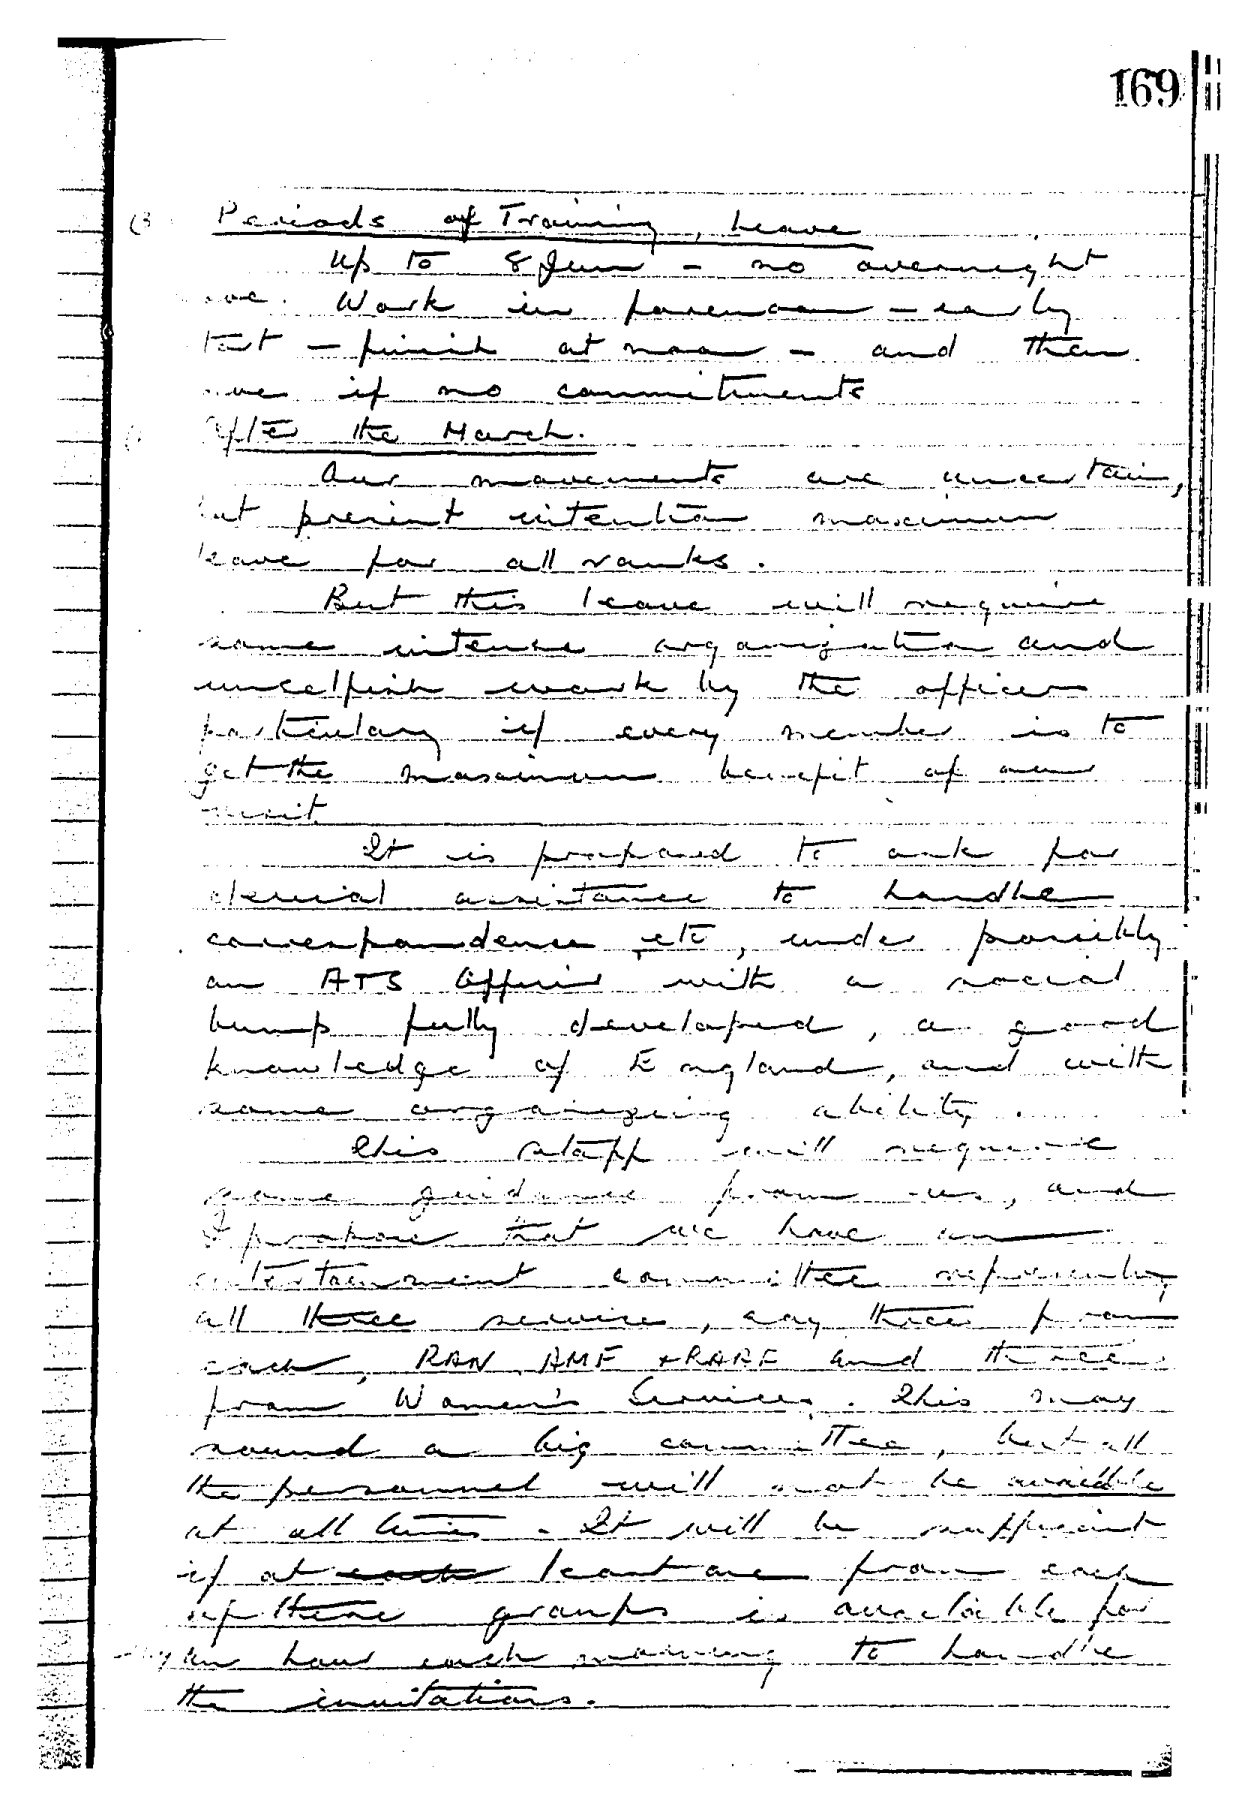 169
(3 Periods of Training, Leave
Up to 8 June - no overnight
Work in forenoon - early
- finish at noon - and then
if no commitments
After the March.
Our movements are uncertain,
but present intention maximum
leave for all ranks.
But this leave will require
some intense organization and
unselfish work by the officers
particulary if every member is to
get the maximum benefit of our
visit.
It is proposed to ask for
clerical assistance to handle
correspondence etc, under possibly
an ATS Officer with a social
bump fully developed, a good
knowledge of England, and with
some organizing ability.
This staff will require
some guidance from us, and
I propose that we have an
entertainment committee representing
all three services, say three from
each, RAN, AMF & RAAF and three
from Women's Services. This may
sound a big committee, but all
the personnel will not be available
at all times. It will be sufficient
if at each least one from each
of these groups is available for
an hour each morning to handle
the invitations.